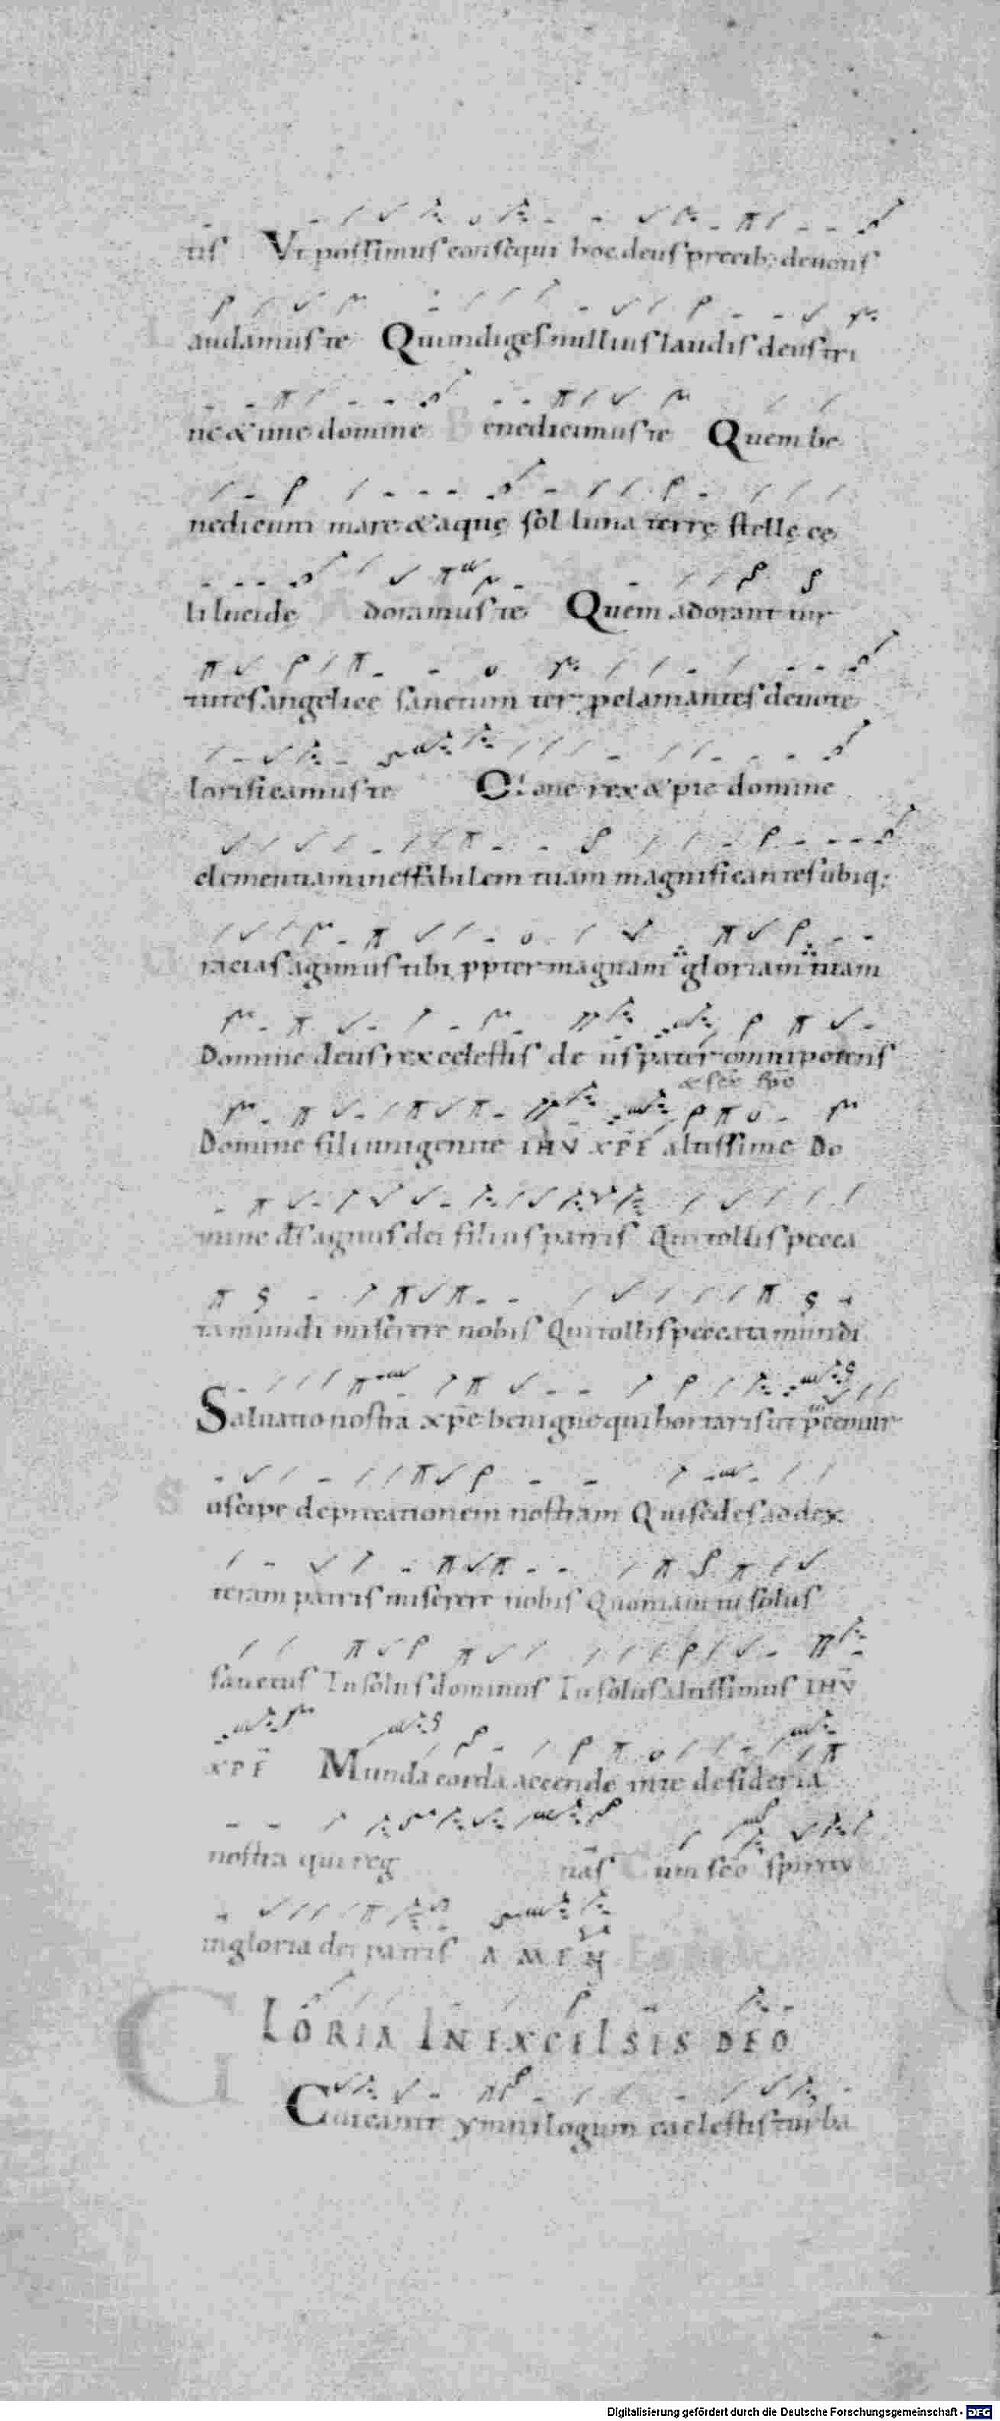 tis Vt possimus consequi hoc deus precib; deuotis
Laudamus te Qui indiges nullius laudis deus tri
ne & une domine Benedicimus te Quem be
nedicunt mare & aquę sol luna terrę stellę cę
li lucidę doramus te Quem adorant uir
tutes angelice sanctum ter pclamantes deuote
lorificamus te O! aue rex & pie domine
clementiam ineffabilem tuam magnificantes ubiq;
racias agimus tibi ppter magnam gloriam tuam
Domine deus rex celestis de us pater omnipotens
& scō spū
Domine fili unigenite IHV XPE altissime Do
mine ds agnus dei filius patris Qui tollis pecca
ta mundi miserere nobis Qui tollis peccata mundi
Saluatio nostra xpe benigne qui hortaris ut
Suscipe deprecationem nostram Qui sedes ad dex
teram patris miserere nobis Quoniam tu solus
sanctus Tu solus dominus Tu solus altissimus IHV
XPE Munda corda accende in te desideria
nostra qui reg nas Cum sco spiritu
in gloria dei patris AMEN
GLORIA IN EXCELSIS DEO
Ciue canit ymnilogum caelestis turba
Digitalisierung gefördert durch die Deutsche Forschungsgemeinschaft - DFG